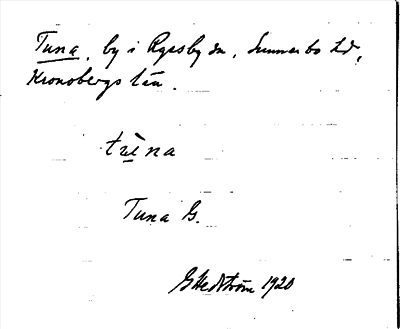 Tuna, by i Ryssby sn, Sunnerbo hd,
Kronobergs län.
tùna
Tuna G.
GHedström 1920